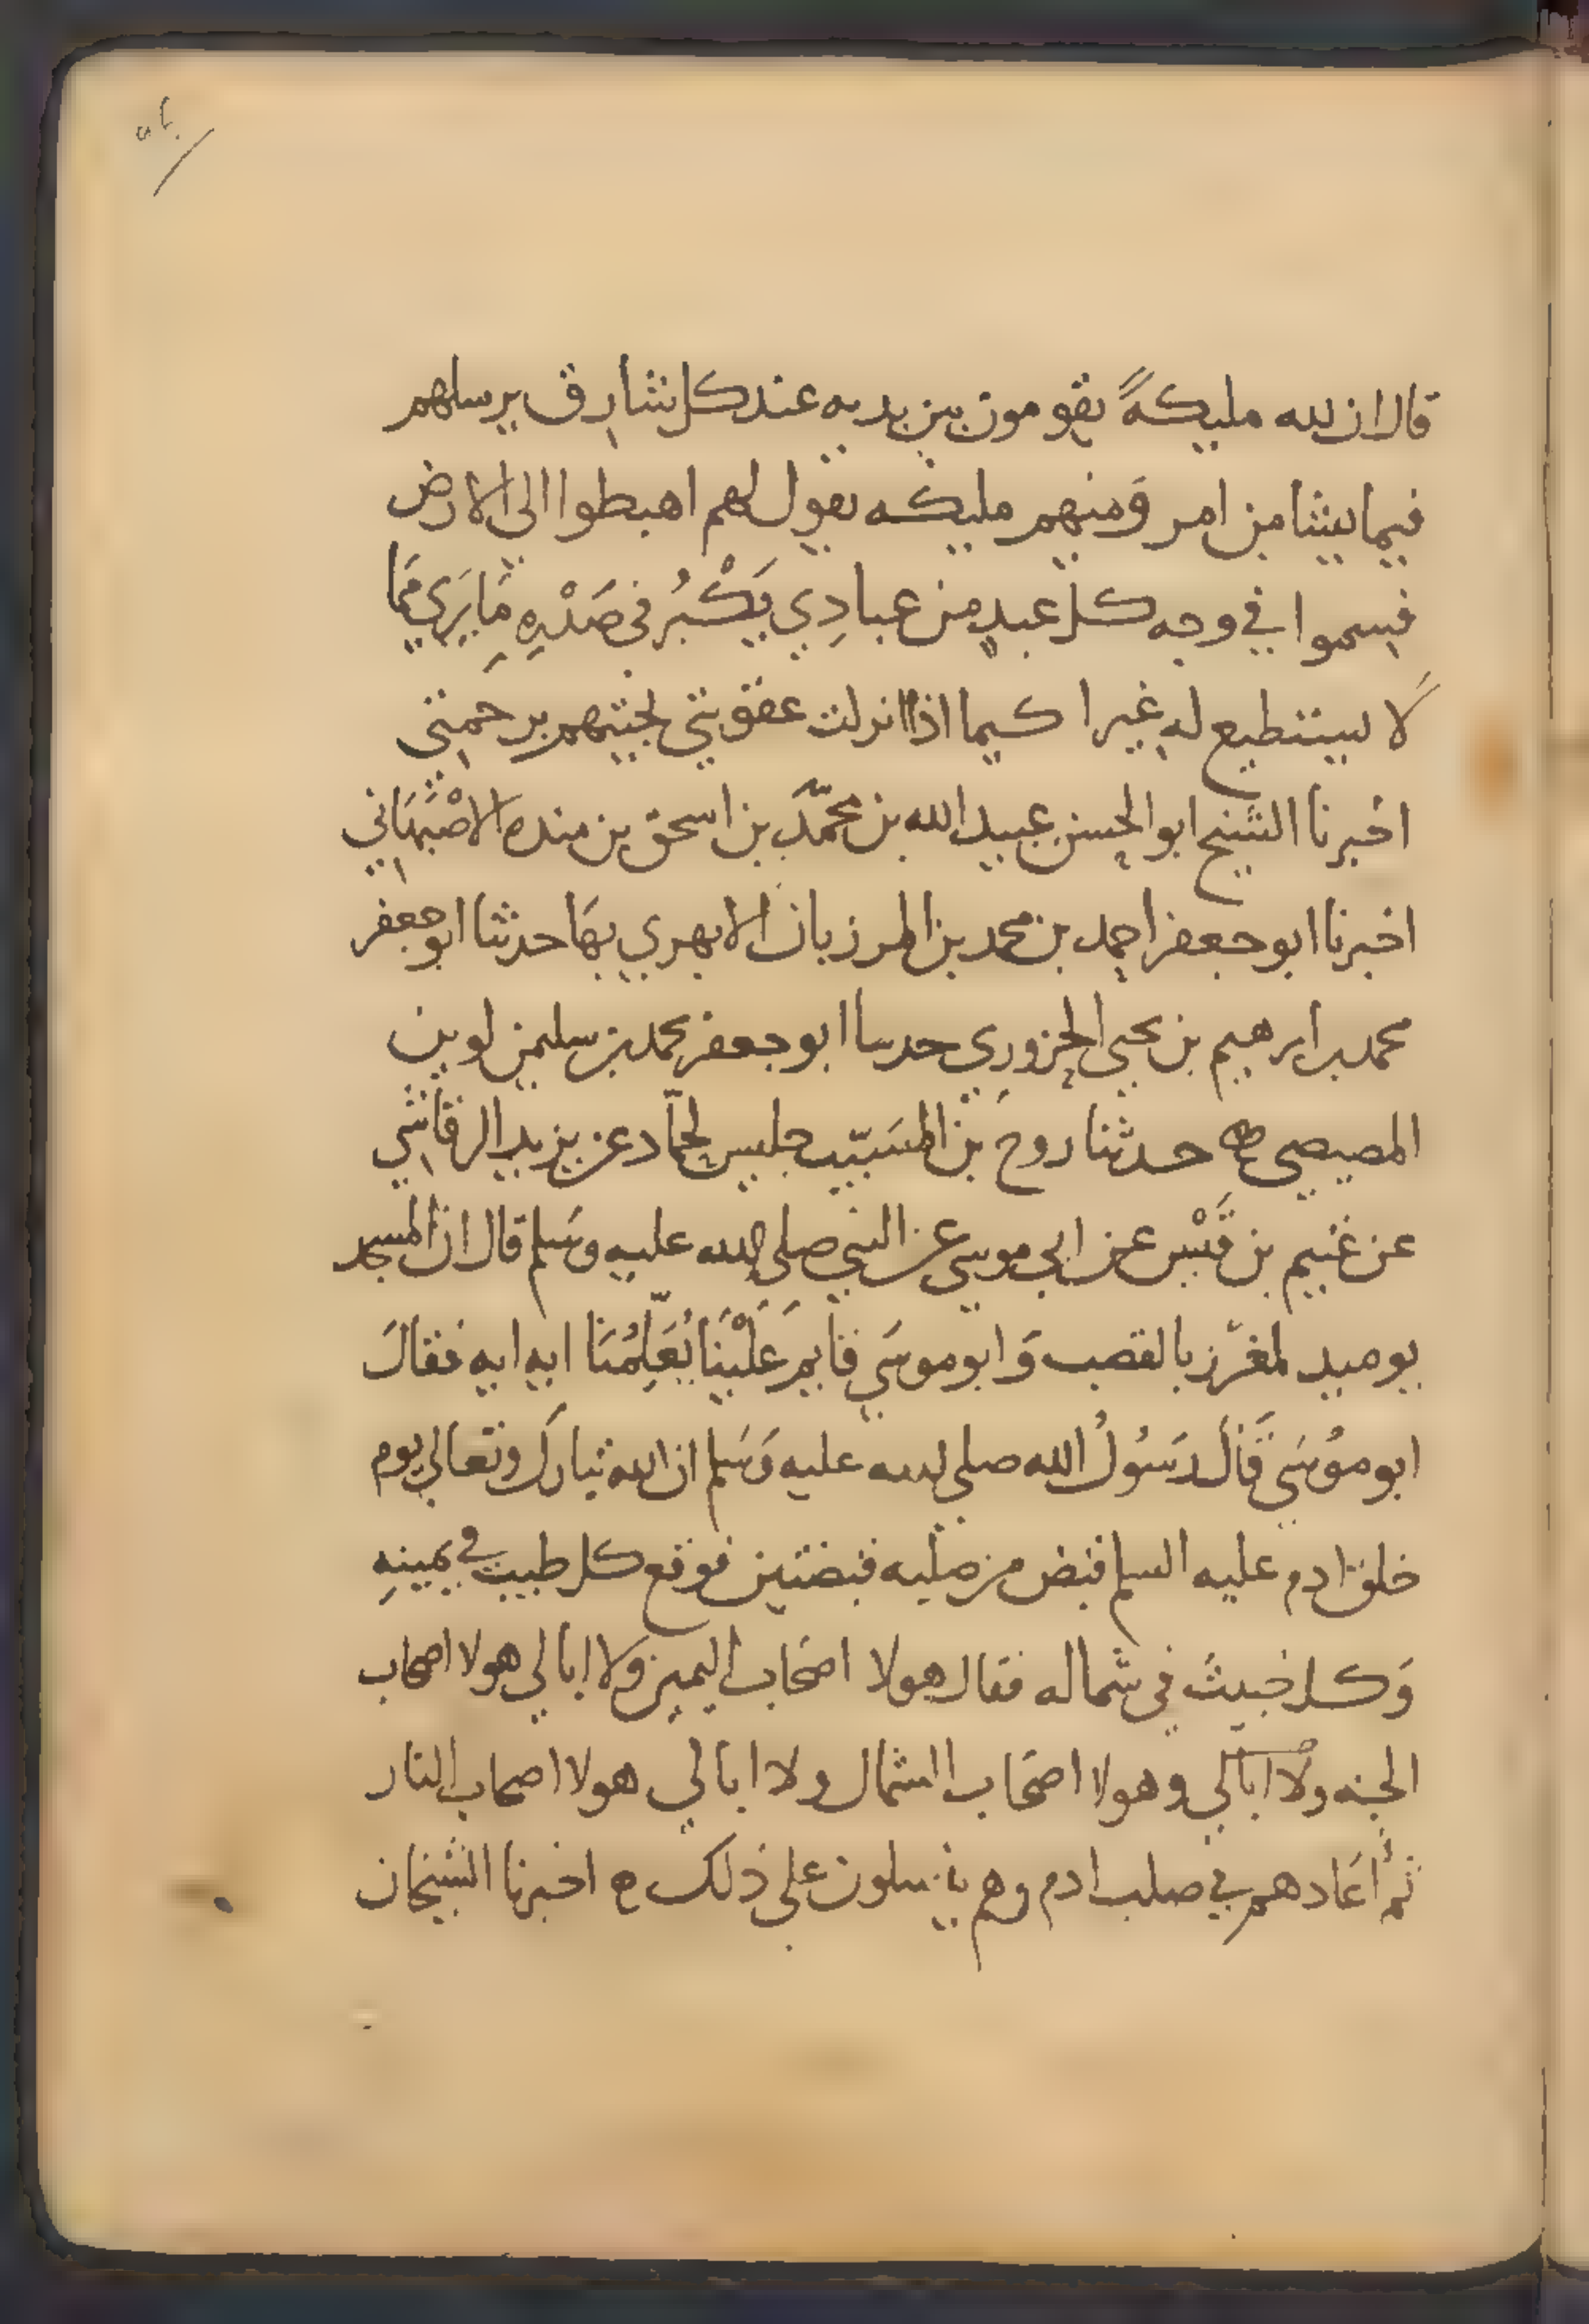 قال ان لله مليكةً يقومون بين يديه عند كل شارق يرسلهم
فيما يشا من امر وَمنهم مليكه يقول لهم اهبطوا الى الارض
فسموا في وجه كل عبدٍ من عبادِي يَكْبُرُ في صَدْرِهِ مَا يَرَي مِمَّا
لا يستطيع له غيرا كيما اذا انزلت عقوبتي نجيتهم برحمتي
اخبرنا الشيخ ابو الحسن عبيد الله بن محمّد بن اسحق بن منده الاصْبَهَاني
اخبرنا ابو جعفر احمد بن محمد بن المرزبان الابهري بهَا حدثنا ابو جعفر
محمد بن ابرهيم بن يحيى الحزوري حدسا ابو جعفر محمد بن سليمن لوين
المصيصي حدثنا روح بن المسَيّب جليس لحمّاد عن يزيد الرقَاشي
عن غنيم بن قَيْس عن ابي موسي عن النبي صلي الله عليه وسَلم قال ان المسجد
يوميد لمغرّز بالقصب وَابو موسَي قايم عَلَيْنَا يُعَلِّمُنَا ايه ايه فقالَ
ابو موُسَي قَال رسَوُلُ الله صلي الله عليه وَسَلم ان الله تبارك وتعالي يوم
خلق ادم عليه السلم قبض من صلبه قبضتين فوقع كل طيب في يمينهِ
وَكل خبيث في شماله فقال هولا اصحَاب اليمين ولا ابالي هولا اصحاب
الجنه ولا ابالي وهولا اصحَاب الشمال ولا ابالي هولا اصحاب النار
ثم اعَادهم في صلب ادم وهم ينسلون على ذلك ه اخبرنا الشيخان